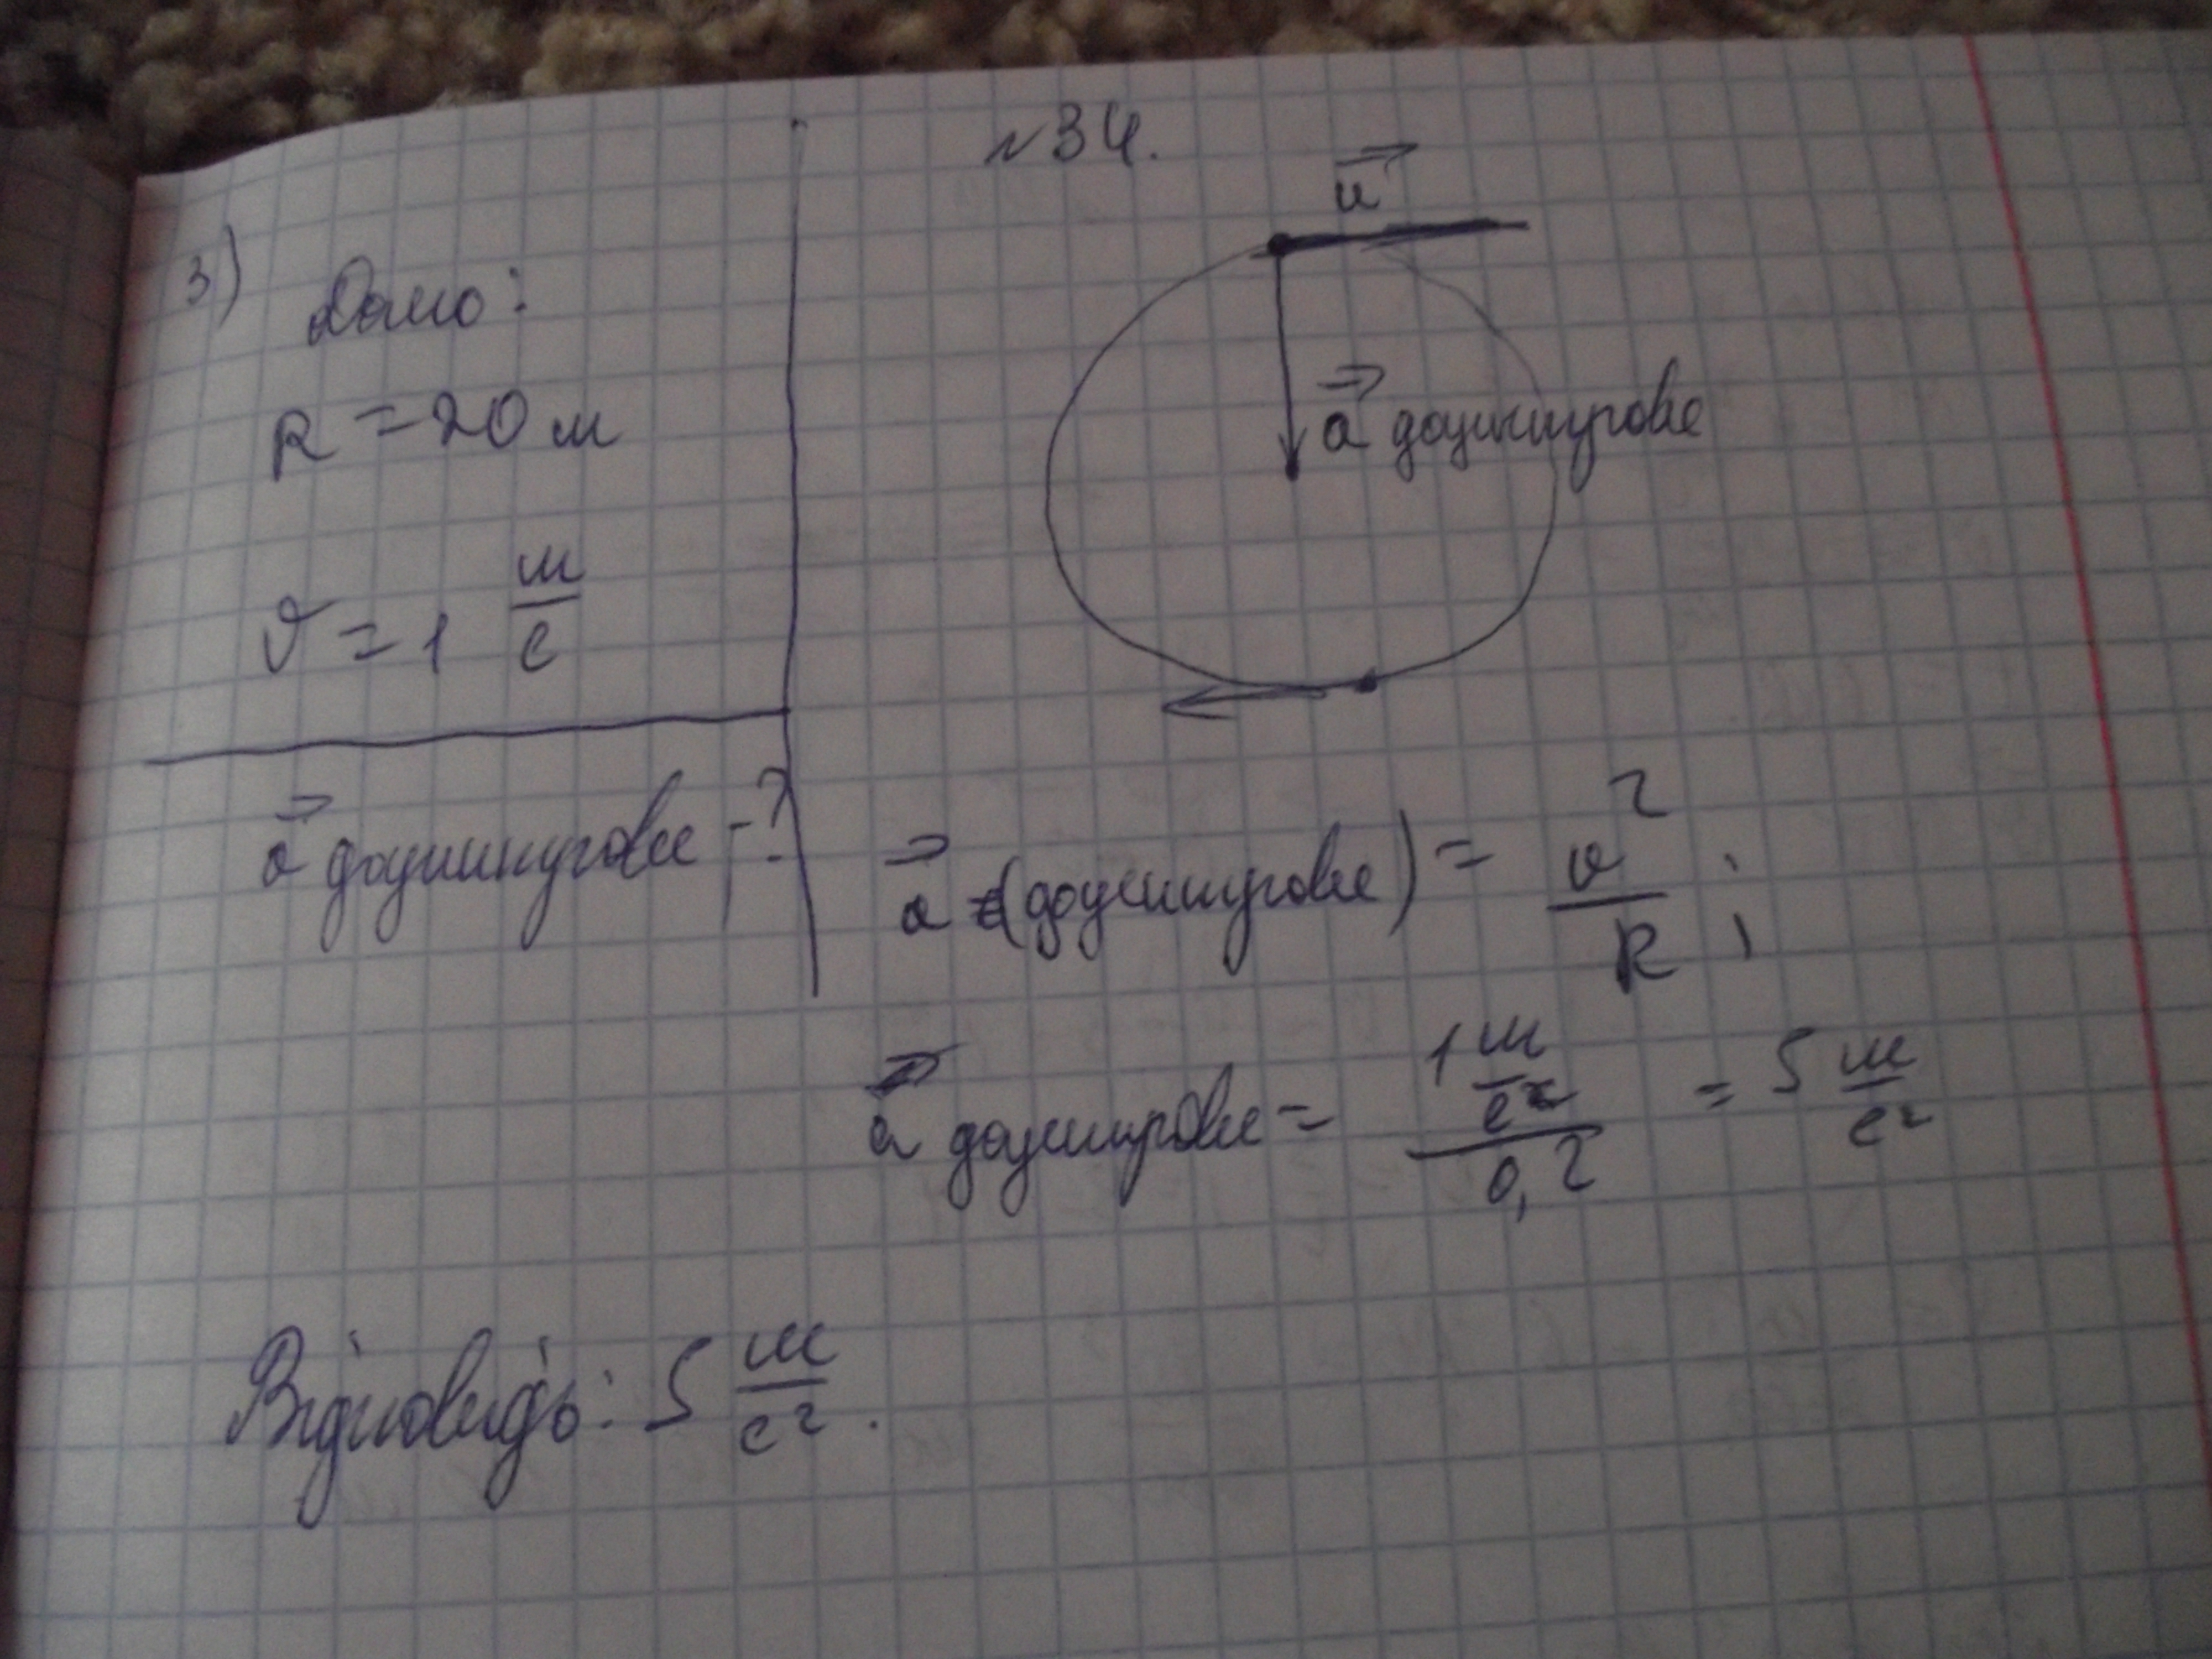 №34.
3) Дано:
R = 20 м
υ = 1 м/с
a⃗ доцентрове - ?
u⃗
a⃗ доцентрове
a⃗ (доцентрове) = υ²/R ;
a⃗ доцентрове = 1 м/с² / 0,2 = 5 м/с²
Відповидь: 5 м/с².